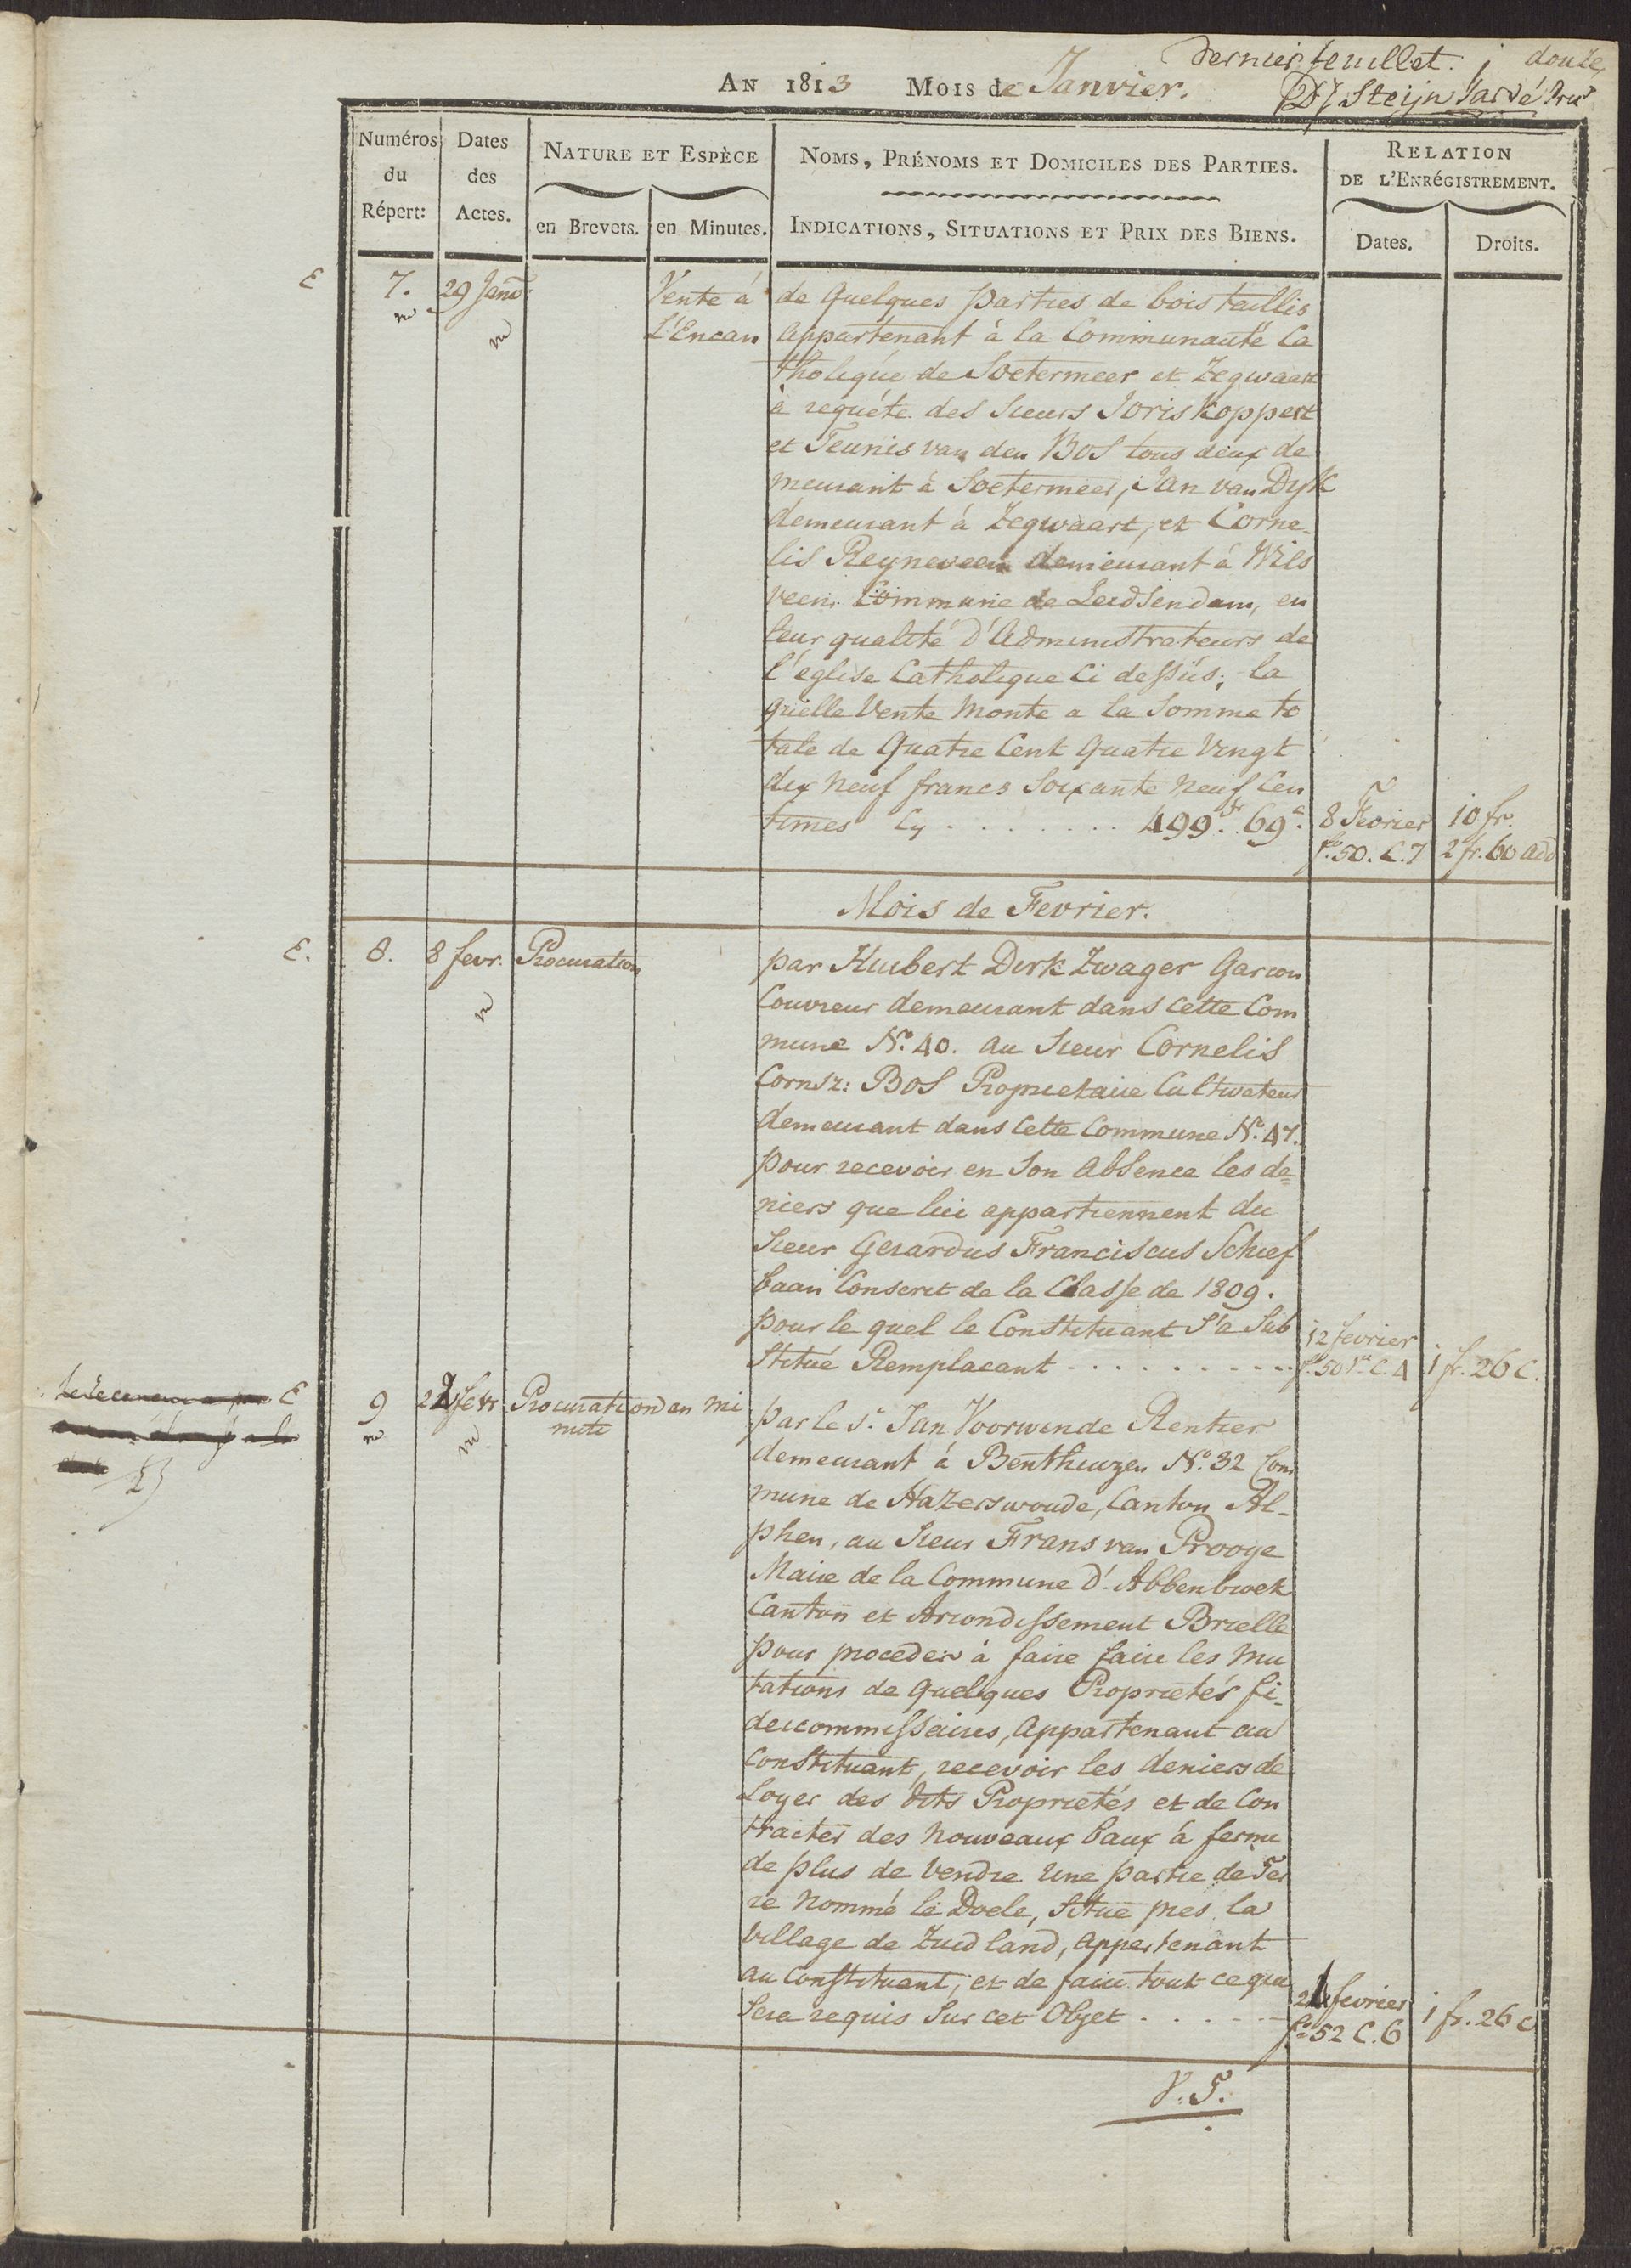 dernier feuillet. douze
An 1813 Mois de Janvier.
DJ Steijn Parvé
Numéros du Répert:
Dates des Actes.
Nature et Espèce
en Brevets.
en Minutes.
Noms, Prénoms et Domiciles des Parties.
Indications, Situations et Prix des Biens.
Relation de l'Enrégistrement.
Dates.
Droits.
E 7. 29 Janv Vente á de quelques parties de bois taillis
L'Encan appartenant à la Communauté Ca
tholique de Soetermeer et Zegwaart
à requéte des Sieurs Joris Koppert
et Teunis van den Bos tous deux de
meurant á Soetermeer, Jan van Dyk
demeurant á Zegwaart, et Corne-
lis Reyneveen demeurant á Wils
veen Commune de Leidsendam, en
leur qualité d'Administrateurs de
l'eglise Catholique Ci dessús, la
quelle Vente Monte a la Somme to
tale de Quatre Cent Quatre Vingt
dix neuf francs Soixante neuf Cen
times Cy . . . . . . . 499. fr 69. c 8 Fevrier 10 fr.
fo. 50. C. 7 2 fr. 60 add
Mois de Fevrier.
E. 8. 8 fevr. Procuration par Huibert Dirk Zwager Garcon
Couvreur demeurant dans cette Com
mune No. 40. au Sieur Cornelis
Cornsz: Bos Proprietaire Cultivateur
demeurant dans cette Commune No. 47.
pour recevoir en Son Absence les de=
niers que lui appartiennent du
Sieur Gerardus Franciscus Schief
baan Conscrit de la Classe de 1809.
pour le quel le Constituant S'a Sub 12 fevrier
stitué Remplacant . . . . . . . . . fo. 50 Vo. C. 4 1 fr. 26 C.
E 9 22 fevr Procuration en mi
nute
par le Sr. Jan Voorwinde Rentier
demeurant á Benthuizen No. 32 Com
mune de Hazerswoude, Canton Al-
phen, au Sieur Frans van Prooye
Maire de la Commune d'Abbenbroek
Canton et Arrondissement Brielle
pour proceder à faire faire les Mu
tations de quelques Proprietés fi-
deicommissaires, appartenant au
Constituant, recevoir les deniers de
Loyer des dits Proprietés et de Con
tracter des nouveaux baux á ferme
de plus de Vendre Une partie de Ter
re nommé le Doele, Situé pres la
Village de Zuidland, appertenant
au Constituant, et de faire tout ce qui
Sera requis Sur cet Objet . . . . . 24 fevrier
fo. 52 C. 6 1 fr. 26 c
V. T.